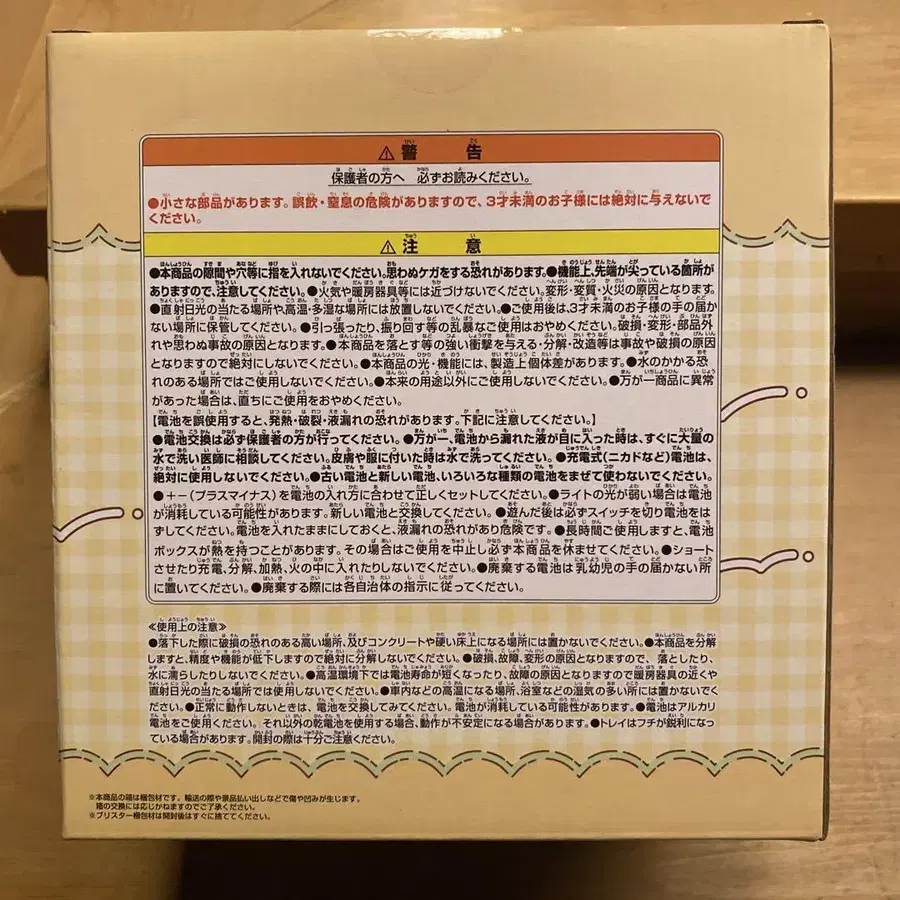 ⚠警告
保護者の方へ 必ずお読みください。
●小さな部品があります。誤飲・窒息の危険がありますので、3才未満のお子様には絶対に与えないで
ください。
⚠注意
●本商品の隙間や穴等に指を入れないでください。思わぬケガをする恐れがあります。●機能上、先端が尖っている箇所が
ありますので、注意してください。●火気や暖房器具等には近づけないでください。変形・変質・火災の原因となります。
●直射日光の当たる場所や、高温・多湿な場所には放置しないでください。●ご使用後は、3才未満のお子様の手の届か
ない場所に保管してください。●引っ張ったり、振り回す等の乱暴なご使用はおやめください。破損・変形・部品外
れや思わぬ事故の原因となります。●本商品を落とす等の強い衝撃を与える・分解・改造等は事故や破損の原因
となりますので絶対にしないでください。●本商品の光・機能には、製造上個体差があります。●水のかかる恐
れのある場所ではご使用しないでください。●本来の用途以外にご使用しないでください。●万が一商品に異常
があった場合は、直ちにご使用をおやめください。
【電池を誤使用すると、発熱・破裂・液漏れの恐れがあります。下記に注意してください。】
●電池交換は必ず保護者の方が行ってください。●万が一、電池から漏れた液が目に入った時は、すぐに大量の
水で洗い医師に相談してください。皮膚や服に付いた時は水で洗ってください。●充電式(ニカドなど)電池は、
絶対に使用しないでください。●古い電池と新しい電池、いろいろな種類の電池をまぜて使わないでください。
●+ー(プラスマイナス)を電池の入れ方に合わせて正しくセットしてください。●ライトの光が弱い場合は電池
が消耗している可能性があります。新しい電池と交換してください。●遊んだ後は必ずスイッチを切り電池をは
ずしてください。電池を入れたままにしておくと、液漏れの恐れがあり危険です。●長時間ご使用しますと、電池
ボックスが熱を持つことがあります。その場合はご使用を中止し必ず本商品を休ませてください。●ショート
させたり充電、分解、加熱、火の中に入れたりしないでください。●廃棄する電池は乳幼児の手の届かない所
に置いてください。●廃棄する際には各自治体の指示に従ってください。
≪使用上の注意≫
●落下した際に破損の恐れのある高い場所、及びコンクリートや硬い床上になる場所には置かないでください。●本商品を分解
しますと、精度や機能が低下しますので絶対に分解しないでください。●破損、故障、変形の原因となりますので、落としたり、
水に濡らしたりしないでください。●高温環境下では電池寿命が短くなったり、故障の原因となりますので暖房器具の近くや
直射日光の当たる場所では使用しないでください。●車内などの高温になる場所、浴室などの湿気の多い所には置かないでく
ださい。●正常に動作しないときは、電池を交換してみてください。電池が消耗している可能性があります。●電池はアルカリ
電池をご使用ください。それ以外の乾電池を使用する場合、動作が不安定になる場合があります。●トレイはフチが鋭利になっ
ている場合があります。開封の際は十分ご注意ください。
※本商品の箱は梱包材です。輸送の際や景品払い出しなどで傷や凹みが生じます。
箱の交換には応じかねますのでご了承ください。
※ブリスター梱包材は開封後はすぐに捨ててください。